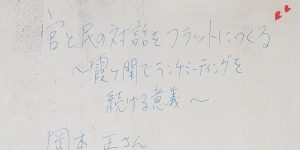 官と民の対話をフラットにつくる
～霞ヶ関でランチミーティングを
続ける意義～
岡本正さん